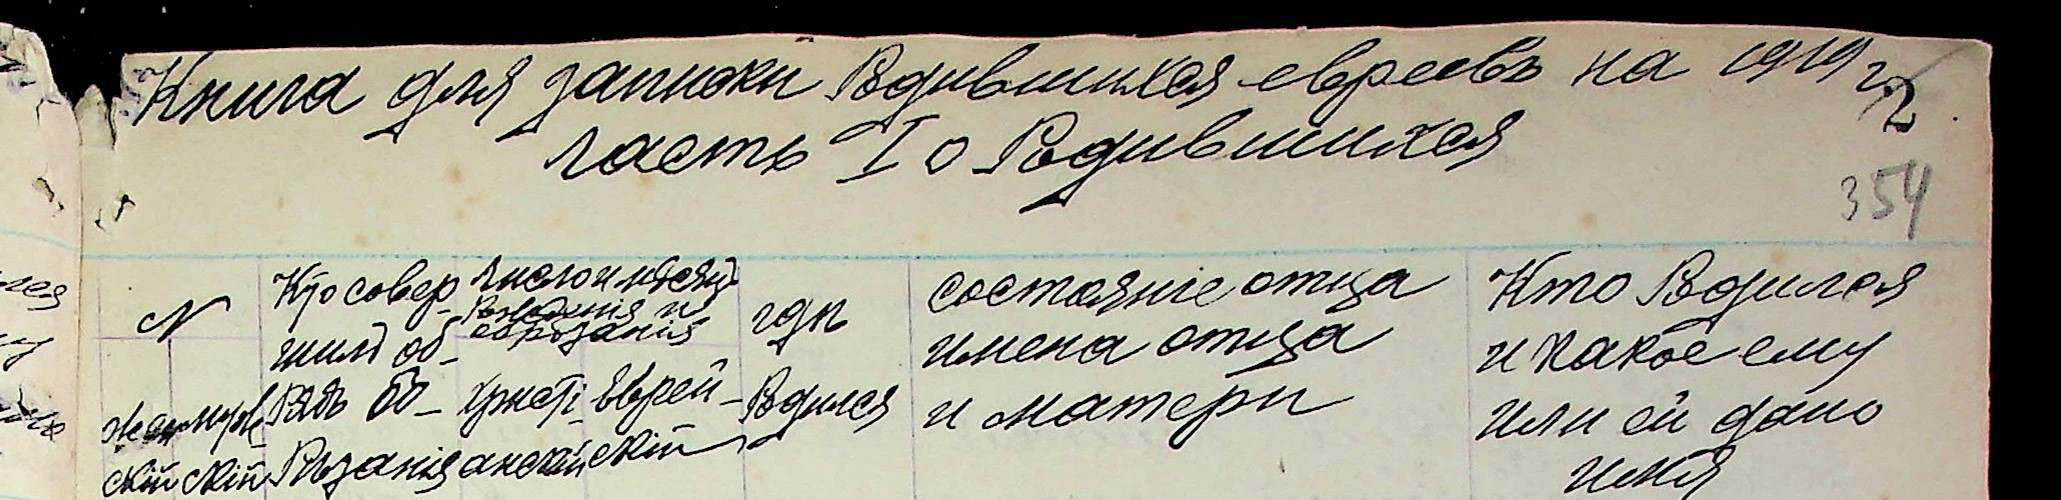 Книга для записки Родившихся евреевъ на 1919 г.
2
часть I о Родившихся
354
N
женскій
мужескій
Кто совершилъ обрядъ обрѣзанія
число и мѣсяцъ рожденія и обрѣзанія
христіанскій
Еврейскій
гдѣ Родился
состояніе отца
имена отца
и матери
Кто Родился
и какое ему
или ей дано
имя